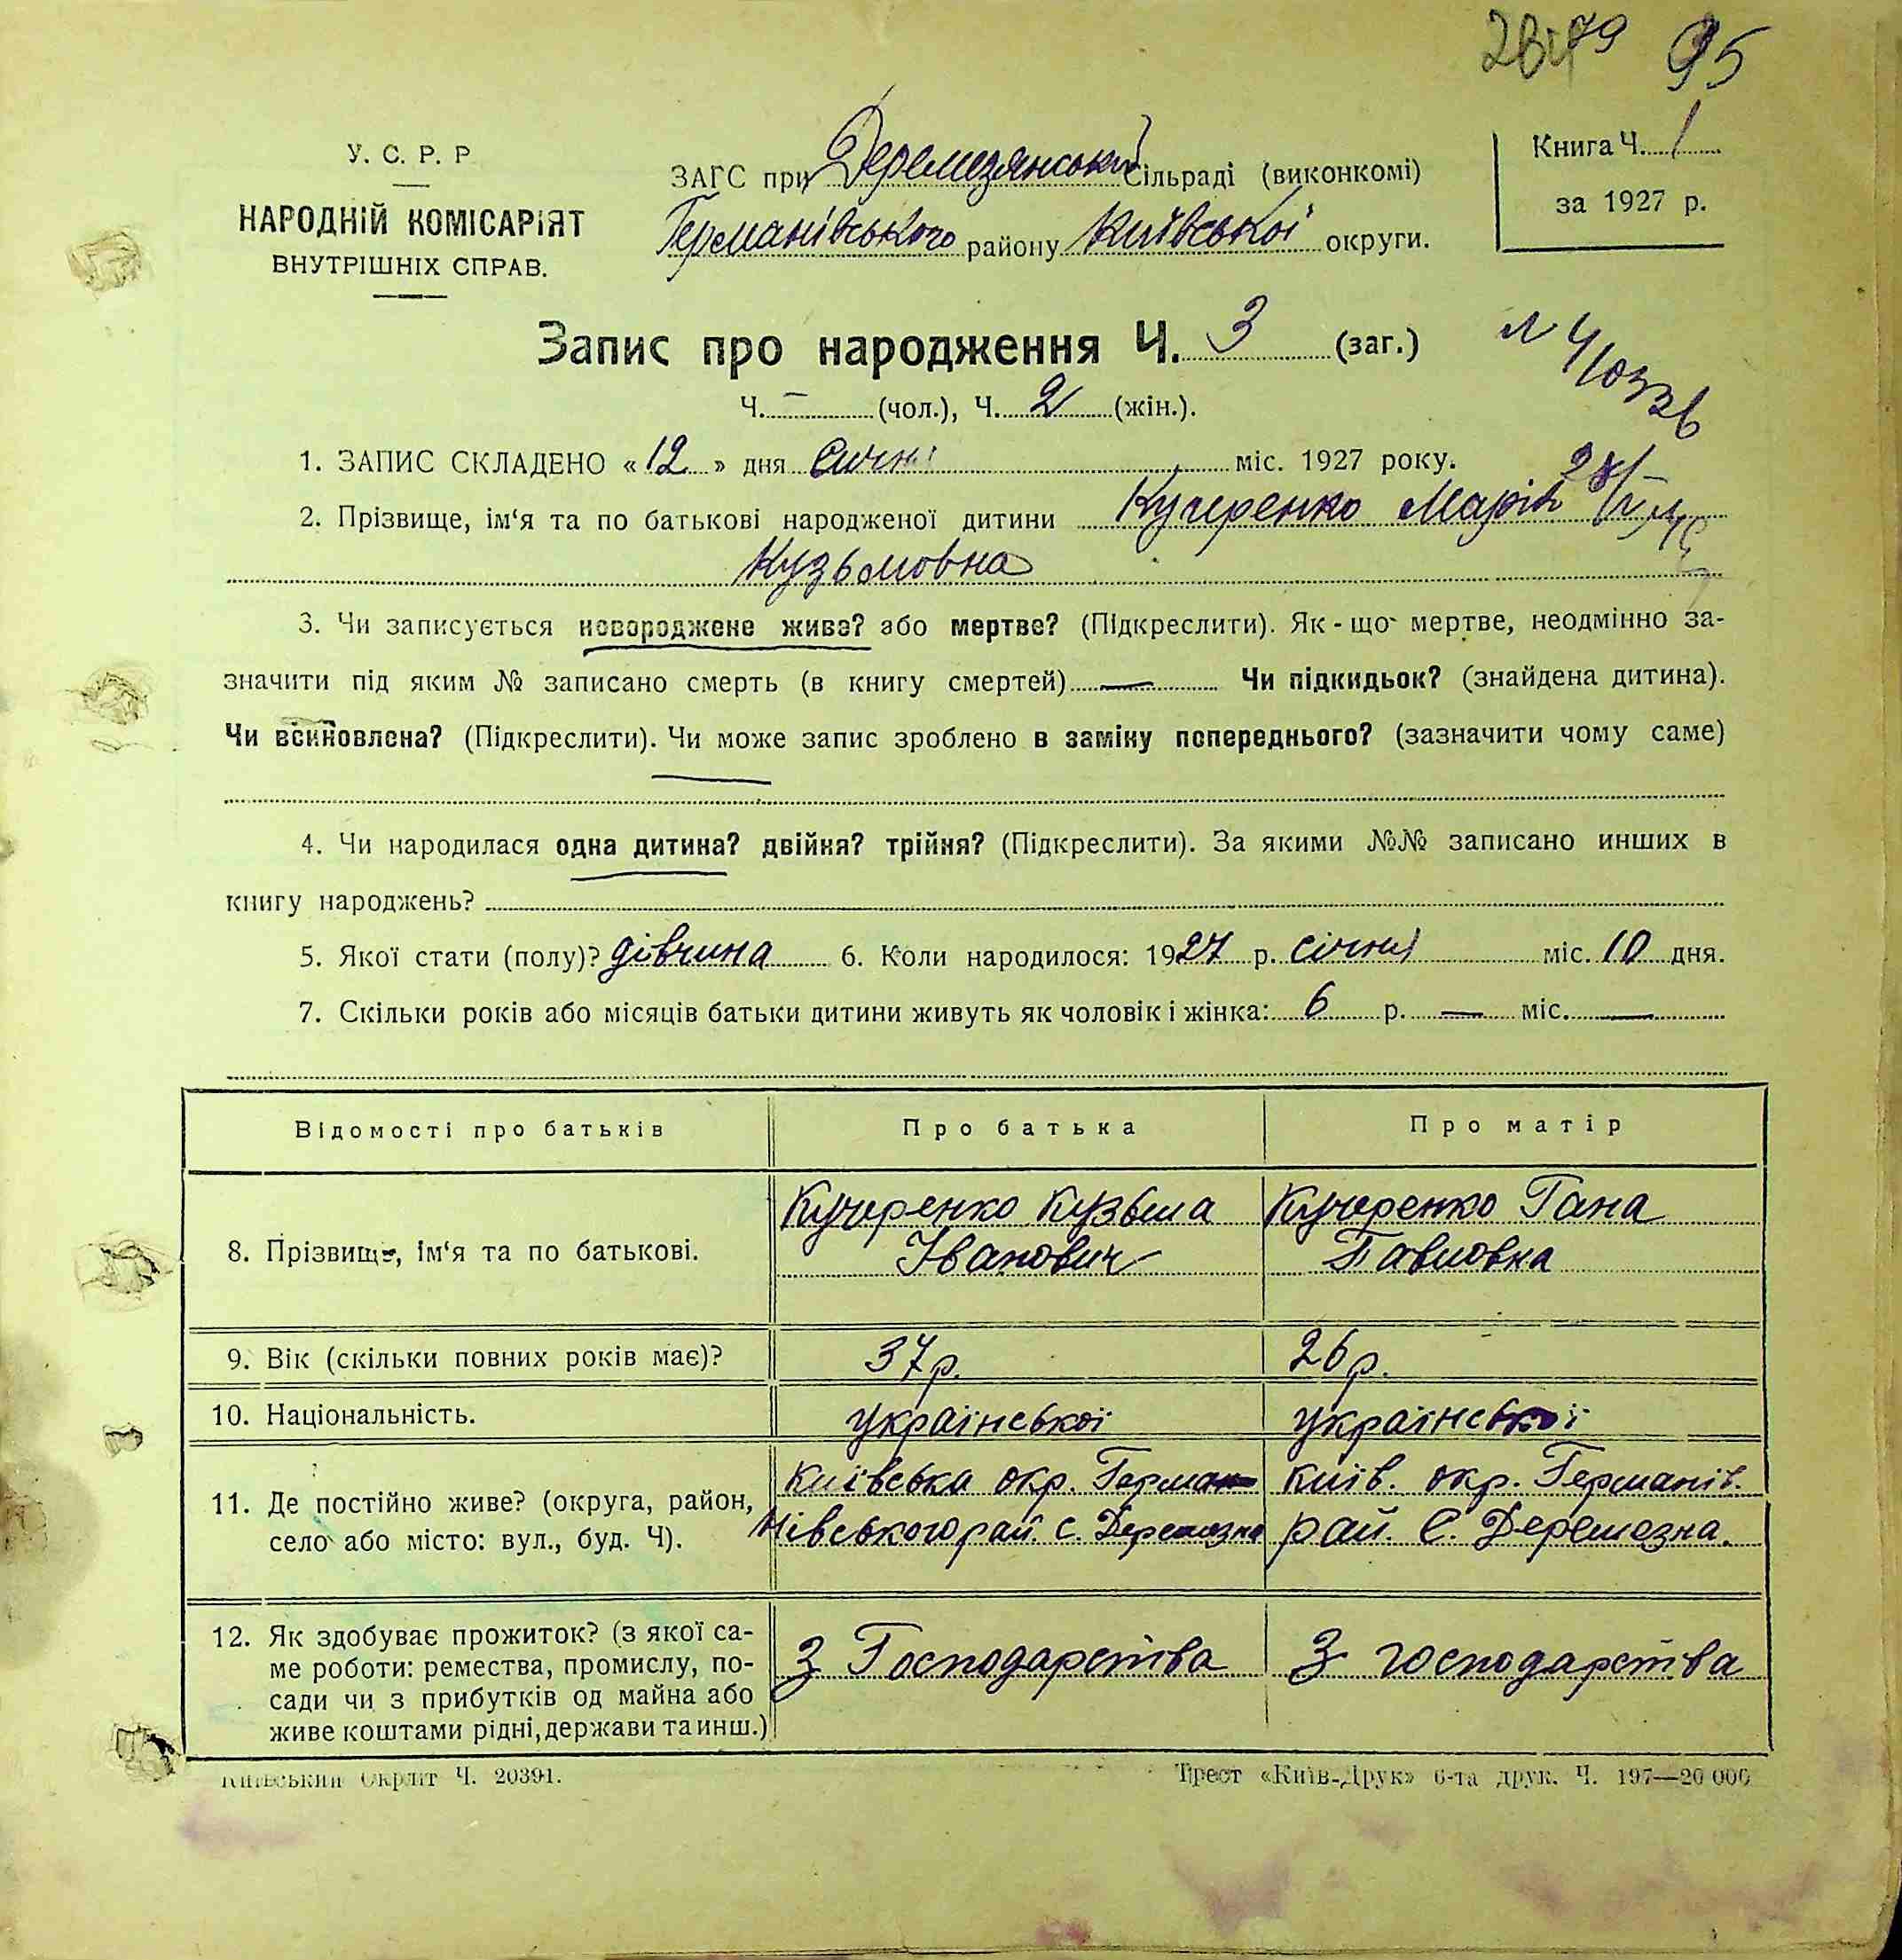 95
У. С. Р. Р
НАРОДНІЙ КОМІСАРІЯТ
ВНУТРІШНІХ СПРАВ.
ЗАГС при Деремезянській Сільраді (виконкомі)
Германівського району Київської округи.
Книга Ч. 1
за 1927 р.
Запис про народження Ч. 3 (заг.)
Ч. – (чол.), Ч. 2 (жін.).
1. ЗАПИС СКЛАДЕНО «12» дня січня міс. 1927 року.
2. Прізвище, ім'я та по батькові народженої дитини Кучеренко Марія
Кузьмовна
3. Чи записується новороджене живе? або мертве? (Підкреслити). Як-що мертве, неодмінно за-
значити під яким № записано смерть (в книгу смертей) — Чи підкидьок? (знайдена дитина).
Чи всиновлена? (Підкреслити). Чи може запис зроблено в заміну попереднього? (зазначити чому саме)
4. Чи народилася одна дитина? двійня? трійня? (Підкреслити). За якими №№ записано инших в
книгу народжень?
5. Якої стати (полу)? дівчина 6. Коли народилося: 1927 р. січня міс. 10 дня.
7. Скільки років або місяців батьки дитини живуть як чоловік і жінка: 6 р. — міс. —
Відомості про батьків Про батька Про матір
8. Прізвище, ім'я та по батькові.
Кучеренко Кузьма
Іванович
Кучеренко Гана
Павловна
9. Вік (скільки повних років має)? 37 р. 26 р.
10. Національність. української української
11. Де постійно живе? (округа, район,
село або місто: вул., буд. Ч).
Київська окр. Герман
нівського рай. с. Деремезна
Київ. окр. Германів.
рай. С. Деремезна.
12. Як здобуває прожиток? (з якої са-
ме роботи: ремества, промислу, по-
сади чи з прибутків од майна або
живе коштами рідні, держави та инш.)
З Господарства
З господарства
Київський Окрліт Ч. 20391.
Трест «Київ-Друк» 6-та друк. Ч. 197—20 000